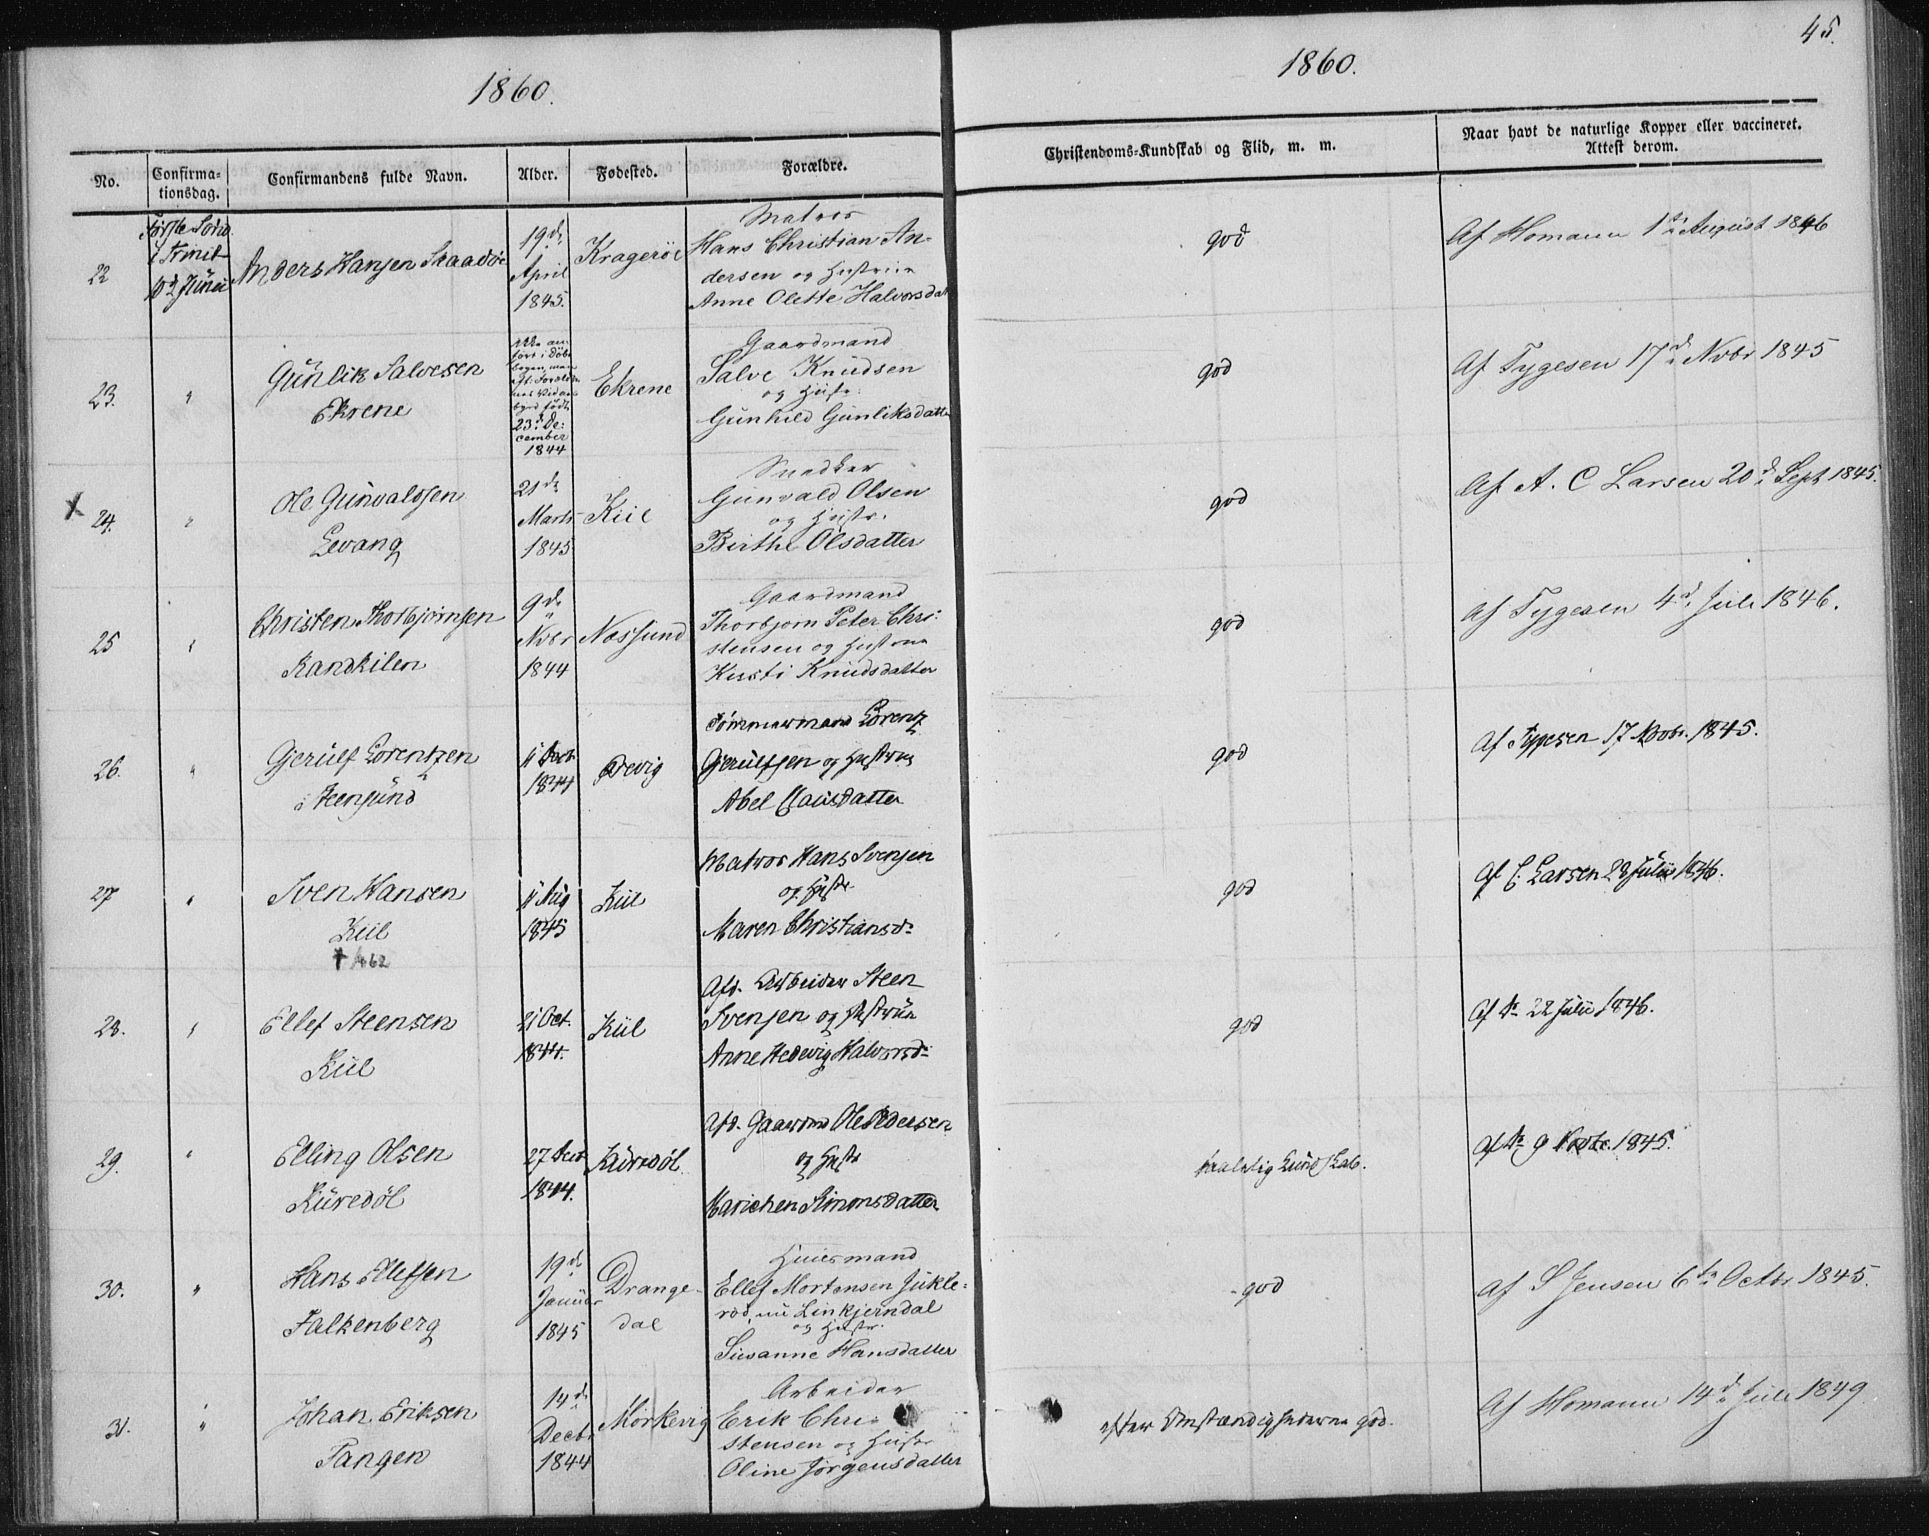 45.
1860.
1860.
No.
Confirma-
tionsdag.
Confirmandens fulde Navn.
Alder.
Fødested.
Forældre.
Christendoms-Kundskab og Flid, m. m.
Naar havt de naturlige Kopper eller vaccineret.
Attest derom.
22
Første Sønd.
i Trinit
10d Junii
Anders Hansen Skaadøe
19de
April
1845.
Kragerøe
Matros
Hans Christian An-
dersen og Hustrue
Anne Olette Halvorsdat
god
Af Homann 1ste August 1846
23.
"
Gunlik Salvesen
Ekrene
23d De:
cember
1844
Ekrene
Gaardmand
Salve Knudsen
og Hustr:
Gunhild Gunliksdatter
god
Af Tygesen 17de Novbr 1845
X 24.
"
Ole Gunvaldsen
Levang
21de
Marts
1845
Kiil
Snedker
Gunvald Olsen
og Hustr.
Birthe Olsdatter
god
Af A. C Larsen 20de Sept 1845.
25
"
Christen Thorbjørnsen
Kandkilen
9de
Nvbr
1844
Næssund
Gaardmand
Thorbjorn Peter Chri:
stensen og Hustrue
Kirsti Knudsdatter
god
Af Tygesen 4de Juli 1846.
26.
"
Gjerulf Lorentzen
Steensund
11
1844
Ødevig
Tømmermand Lorentz
Gjerulfsen og Hustrue
Abel Clausdatter
god
Af Tygesen 17 Novbr. 1845.
27
"
Sven Hansen
Kiil
† 1862
11 Aug
1845
Kiil
Matros Hans Svensen
og Hustr.
Maren Christiansd:
god
Af C. Larsen 28 Julii 1846.
28.
"
Ellef Steensen
Kiil
21 Oct.
1844.
Kiil
Afd. Arbeider Steen
Svensen og Hustrue
Anne Hedevig Halvorsd:
god
Af Do 22 Julii 1846.
29.
"
Elling Olsen
Kuredøl
27
1844.
Kuredøl
Afd. Gaardmd Ole Pedersen
og Hustr
Marichen Simonsdatter
taalelig Kundskab.
Af Do 9 1845.
30.
"
Hans Ellefsen
Falkenberg
19de
Januer
1845
Drange-
dal
Huusmand
Ellef Mortensen Jukle=
rød, nu Linkjerndal
og Hustr.
Susanne Hansdatter
god
Af S Jensen 6te Octbr 1845.
31.
"
Johan Eriksen
Tangen
14de
Decbr
1844
Morkevig
Arbeider
Erik Chri=
stensen og Hustr
Oline Jørgensdatter
efter Omstændighederne god.
Af Homann 14de Juli 1849